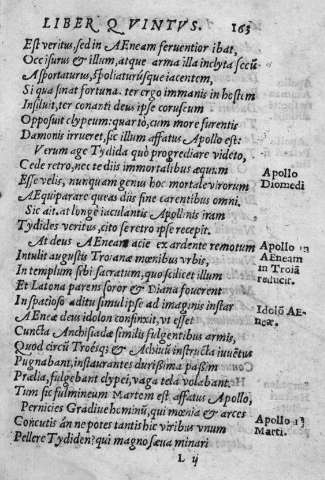 LIBER QVINTVS. 163
Est veritus, sed in AEneam feruentior ibat,
Occisurus & illum, atque arma illa inclyta secũ
Asportaturus, spoliaturúsque iacentem,
Si qua sinat fortuna. ter ergo immanis in hostem
Insiluit, ter conanti deus ipse coruscum
Opposuit clypeum: quartò, cum more furentis
Dæmonis irrueret, sic illum affatus Apollo est:
Verum age Tydida quò progrediare videto,
Cede retro, nec te diis immortalibus æquum
Apollo
Esse velis, nunquam genus hoc mortale virorum
Diomedi
AEquiparare queas diis fine carentibus omni.
Sic ait. at longè iaculantis Apollinis iram
Tydides veritus, citò se retro ipse recepit.
At deus AEneam acie ex ardente remotum
Apollo
Intulit augustis Troianæ mœnibus vrbis,
AEneam
In templum sibi sacratum, quo scilicet illum
in Troiã
reducit.
Et Latona parens soror & Diana fouerent
In spatioso aditu simul ipse ad imaginis instar
Idolũ AE-
AEneæ deus idolon confinxit, vt esset
neæ.
Cuncta Anchisiadæ similis fulgentibus armis,
Quod circũ Troésq; & Achiuũ instructa iuuẽtus
Pugnabant, instaurantes durissima passim
Prælia, fulgebant clypei, vaga tela volabant.
Tum sic fulmineum Martem est affatus Apollo,
Pernicies Gradiue hominũ, qui mœnia & arces
Apollo
Concutis án ne potes tantis hic viribus vnum
Marti.
Pellere Tydiden? qui magno sæua minari
L ij